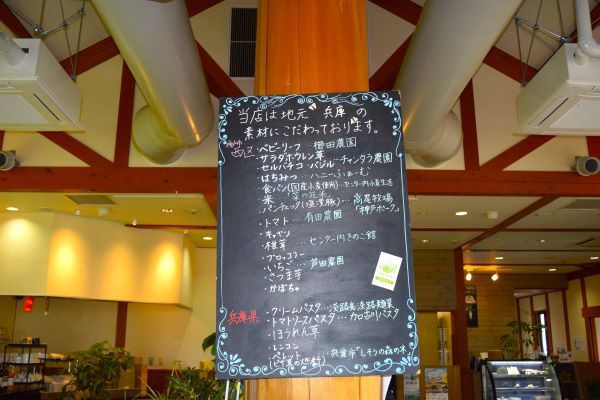 当店は地元"兵庫"の
素材にこだわっております。
西区・ベビーリーフ 樽田農園
・サラダホウレン草
・セルバチコ バジル…チャンタラ農園
・はちみつ…ハニーふぁーむ
・食パン(国産小麦使用)…センター内小麦生活
・米
・パンチェッタ(塩漬豚)…高尾牧場
「神戸ポーク」
・トマト…有田農園
・キャベツ
・椎茸…センター内きのこ館
・ブロッコリー
・いちご…芦田農園
・さつま芋
・かぼちゃ
兵庫県・クリームパスタ…淡路島淡路麺業
・トマトソースパスタ…加古川パスタ
・ほうれん草
・レンコン
・ペレット…宍粟市「しそうの森の木」